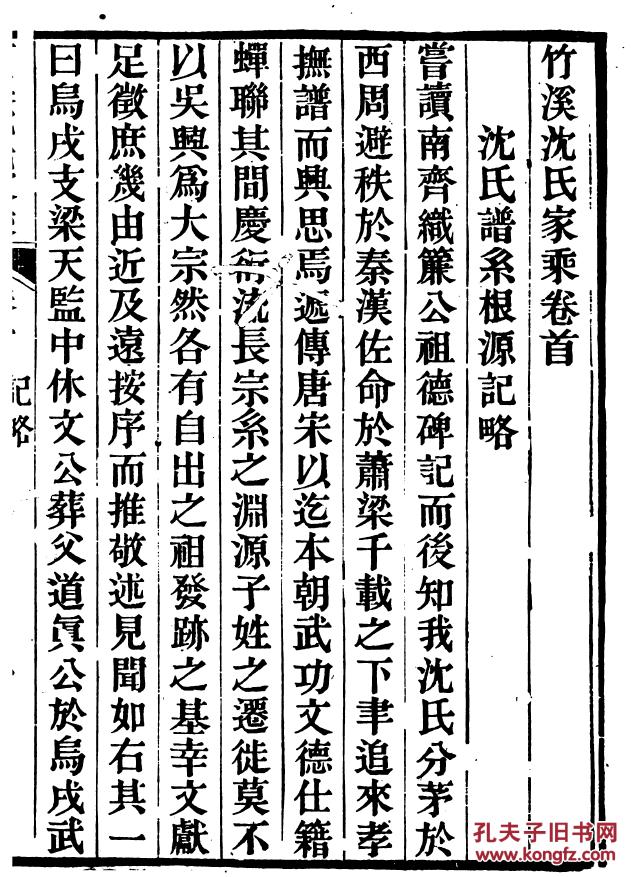 竹溪沈氏家乘卷首
沈氏譜系根源記略
嘗讀南齊織簾公祖德碑記而後知我沈氏分茅於
西周避秩於秦漢佐命於蕭梁千載之下聿追來孝
撫譜而興思焉遞傳唐宋以迄本朝武功文德仕籍
蟬聯其間慶衍流長宗系之淵源子姓之遷徙莫不
以吳興爲大宗然各有自出之祖發跡之基幸文獻
足徵庶幾由近及遠按序而推敬述見聞如右其一
曰烏戍支梁天監中休文公葬父道眞公於烏戍武
記略
孔夫子旧书网
www.kongfz.com